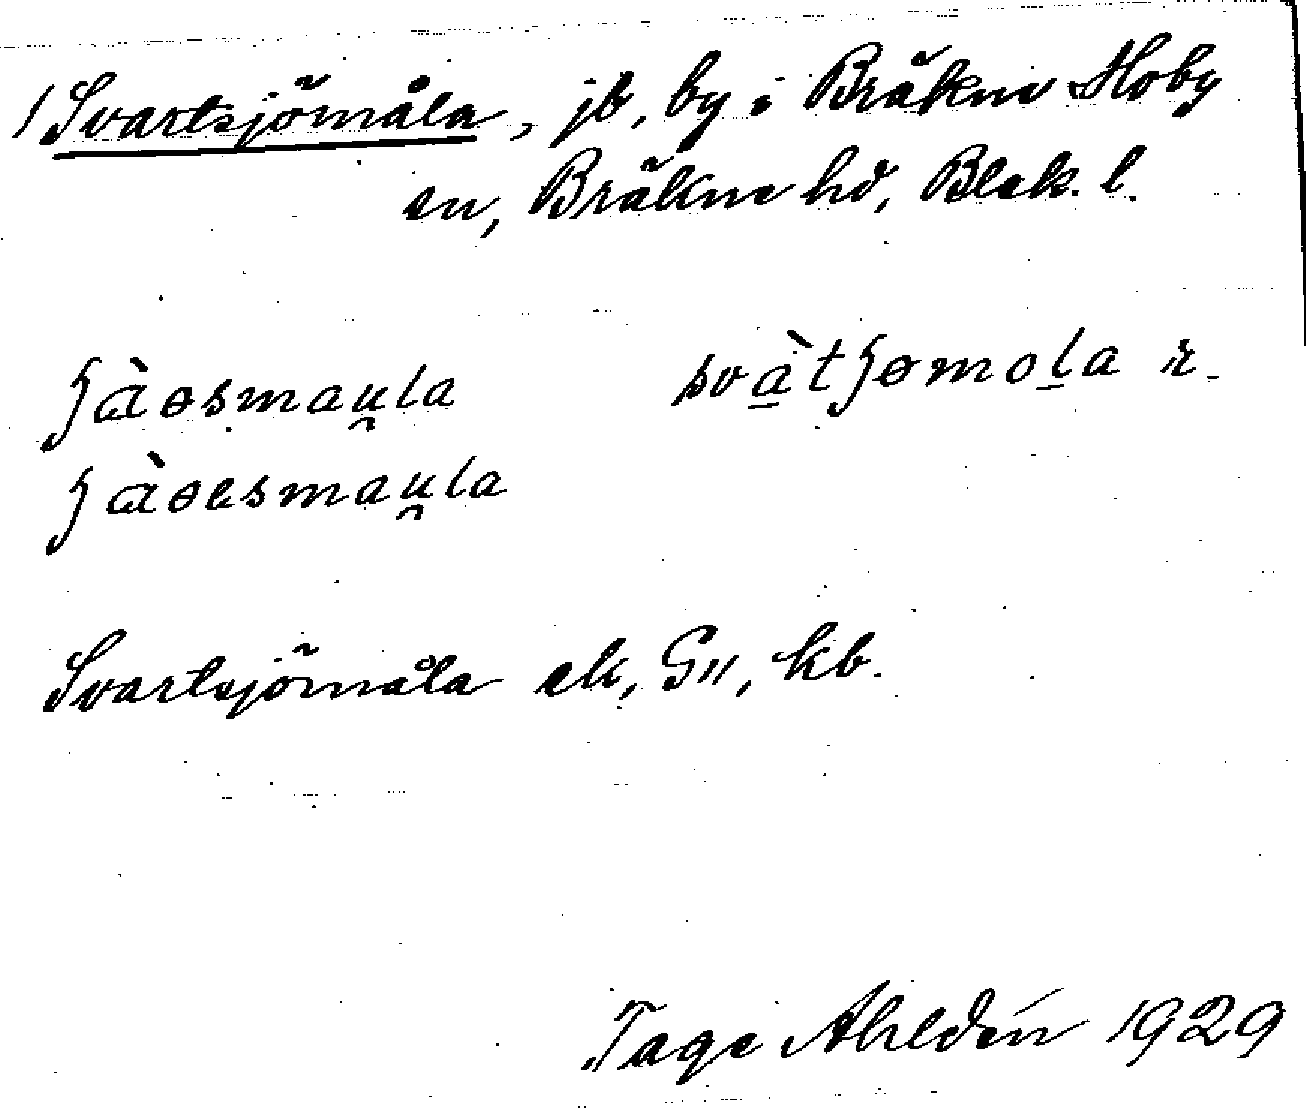 1 Svartsjömåla, jb, by i Bräkne Hoby
sn, Bräkne hd, Blek. l.
ʃàɵsmau̯la svàtʃɵmola r.
ʃàɵɛsmau̯la
Svartsjömåla ek, G11, kb.
Tage Ahldén 1929